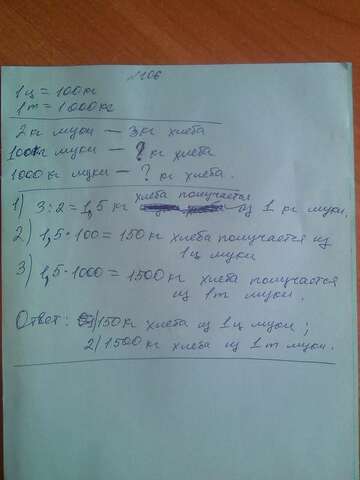 №106
1ц = 100кг
1т = 1000кг
2 кг муки — 3кг хлеба
100кг муки — ? кг хлеба
1000 кг муки — ? кг хлеба.
хлеба получается
1) 3:2 = 1,5 кг из 1 кг муки.
2) 1,5·100 = 150кг хлеба получается из
1ц муки
3) 1,5·1000 = 1500кг хлеба получается
из 1т муки.
Ответ: 1)150кг хлеба из 1ц муки;
2)1500кг хлеба из 1т муки.